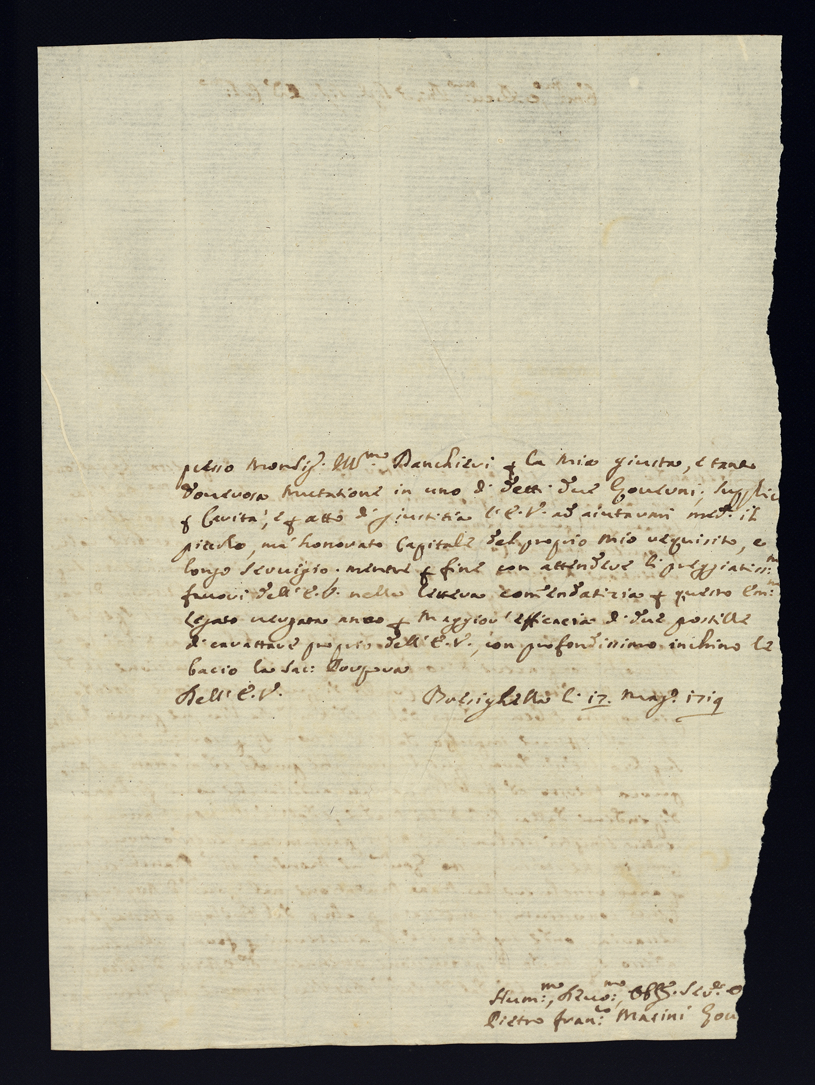 presso Monsig.r Ill.mo Banchieri p la mia giusta, e tanto
doverosa mutatione in uno di detti due Governi. Supplic
p Carità, e p atto di giustitia l'E.V. ad aiutarmi med.e il
picciolo, ma honorato Capitale del proprio mio requisito, e
longo servigio. mentre p fine con attendere li preggiatiss.mi
favori dell'E.V. nella lettera comendatizia p questo Em.mo
Legato vergata anco p maggior' efficacia di due postille
di carattere proprio dell'E.V., con profondissimo inchino le
bacio la Sac: Porpora
Dell'E.V. Brisighella li 17. Mag.o 1719
Hum.mo, Devo.mo, Obg.
Pietro Fran.co Masini Gou